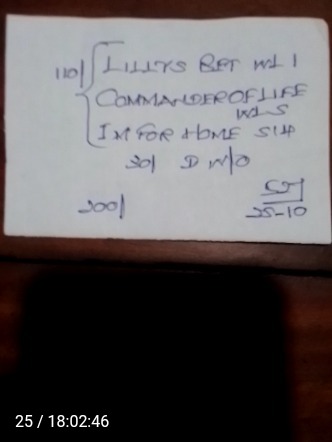 110/ { LILLYS BET WL 1
COMMANDER OF LIFE
WLS
IM FOR HOME SH4
30/ D W/O
200/
25-10
25 / 18:02:46